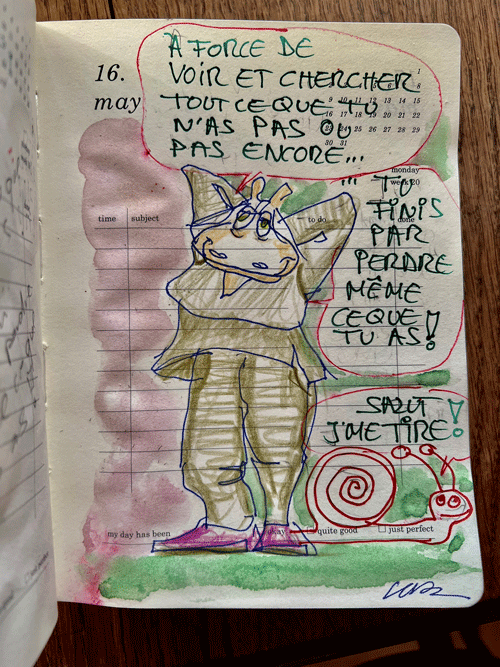 À FORCE DE
VOIR ET CHERCHER
TOUT CE QUE TU
N'AS PAS OU
PAS ENCORE...
16.
may
1
8
9 10 11 12 13 14 15
16 17 18 19 20 21 22
23 24 25 26 27 28 29
30 31
monday
week 20
... TU
FINIS
PAR
PERDRE
MÊME
CE QUE
TU AS !
time subject to do done
SALUT !
J'ME TIRE
my day has been okay quite good just perfect